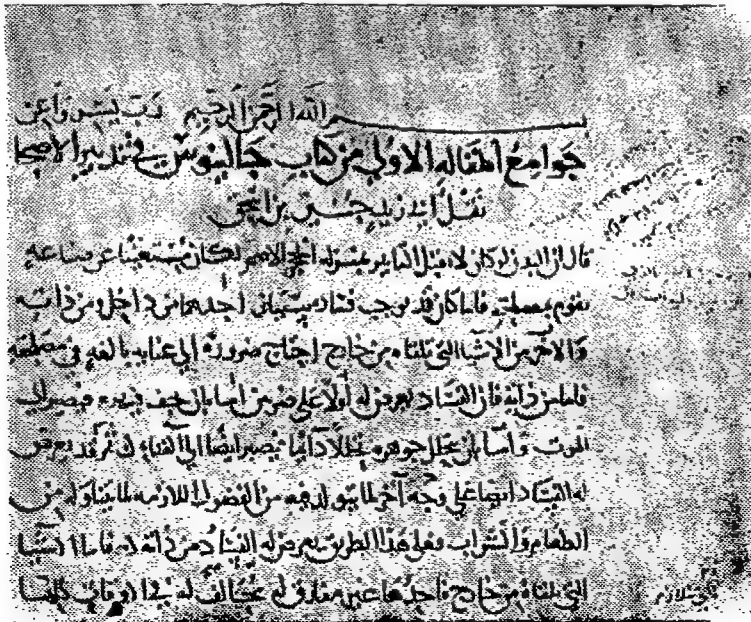 بسم الله الرحمن الرحيم رب يسر وأعن
جوامع المقاله الاولى من كتاب جالينوس في تدبير الاصحا
نقل ابي زيد حنين بن اسحق
قال ان البدن لو كان لا يقبل التاثير بمنزلة الحجر الاصم لكان مستغنيا عن صناعه
تقوم بمصلحته فلما كان قد يوجب فساده سببان احدهما من داخل ومن ذاته
والاخر من الاشيا التي تلقاه من خارج احتاج ضرورة الي عنايه بالغه في مصلحته
فاما من ذاته فان الفساد يعرض له أولا علي ضربين اما بان يجف فيه فيصير الي
الموت وأما بان يحلل جوهره تحللا دائما فيصير ايضا الي الفناء ثم قد يعرض
له الفساد ايضا علي وجه آخر لما يتولد فيه من الفضول اللازمه لما يتناوله من
الطعام والشراب فعلي هذا الطريق يعرض له الفساد من ذاته فاما الاشيا
التي تلقاه من خارج فاحدها غير مفارق له مخالف له في اوقات كلها